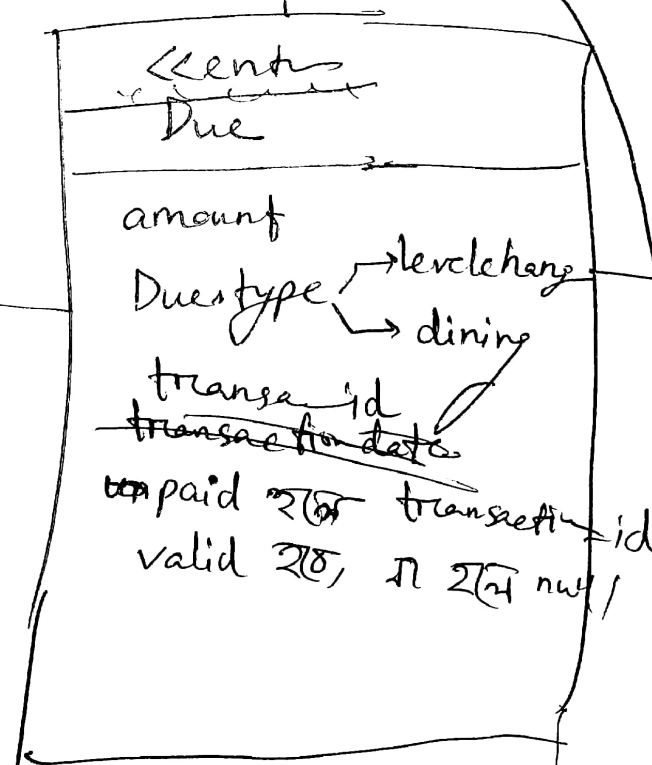 <<entity
Due
amount
Dues type → levelchang
→ dining
transa_id
transaction date
paid হলে transaction_id
valid হবে, না হলে null